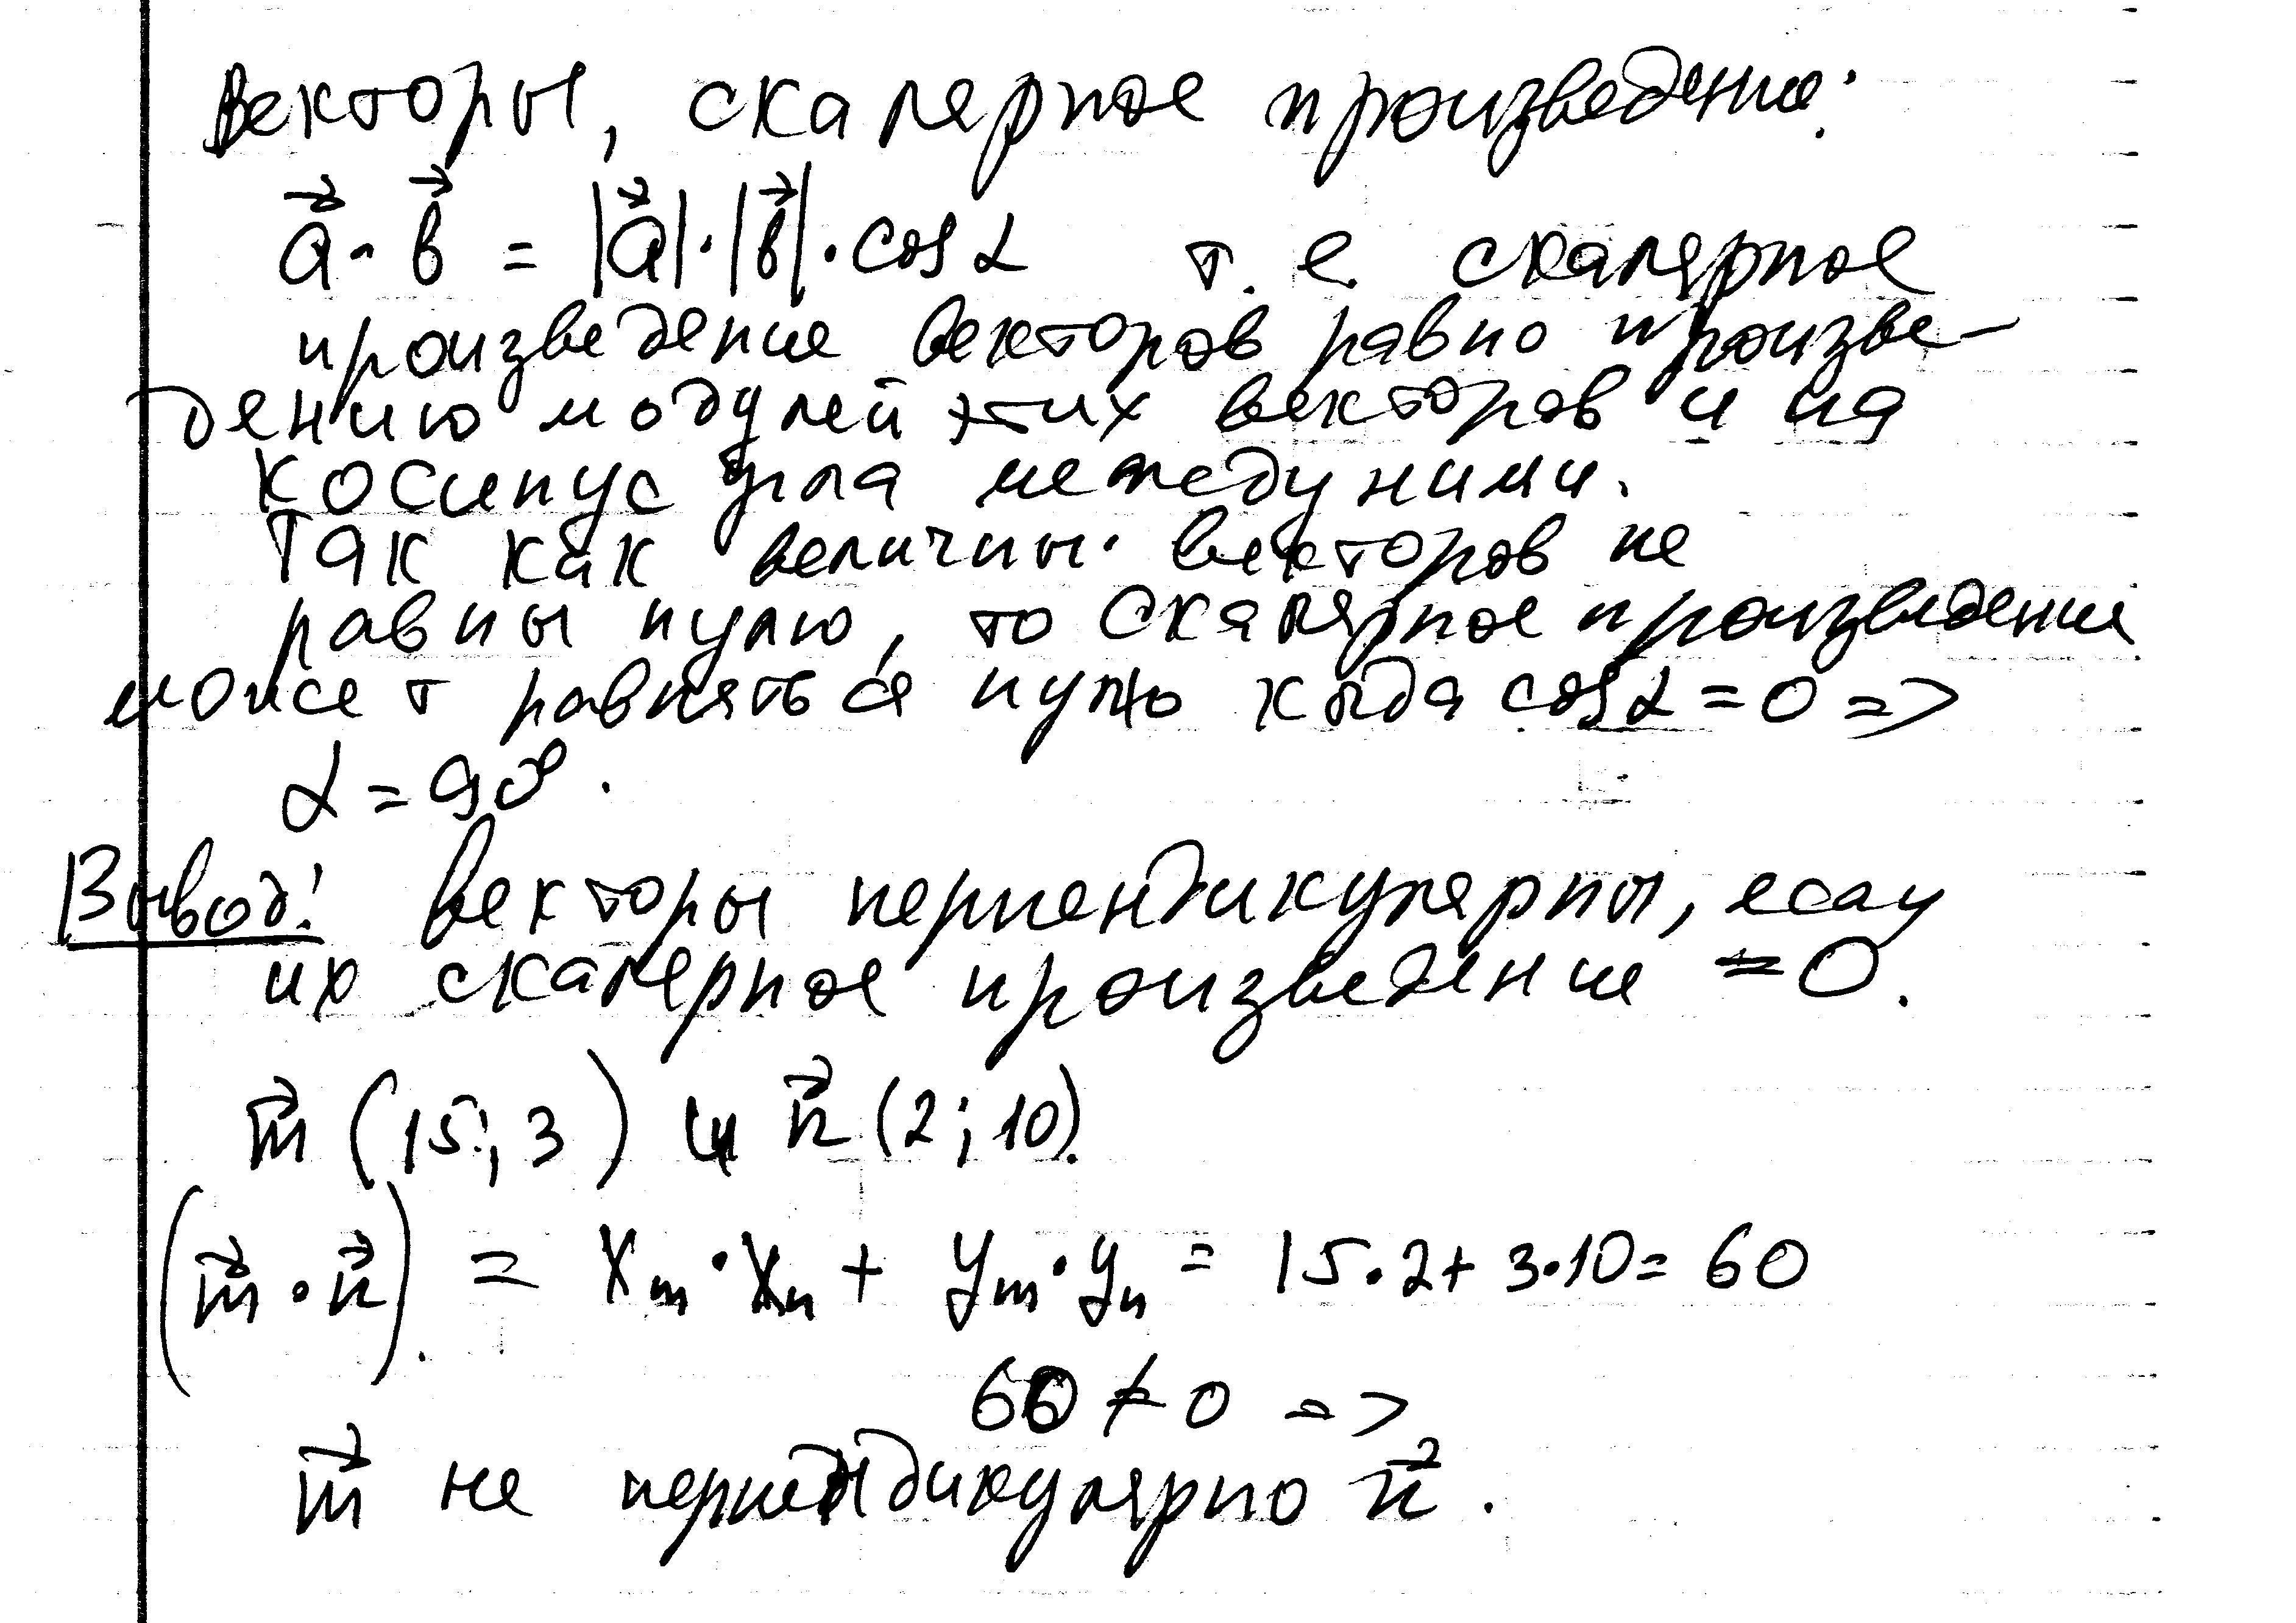 Векторы, скалярное произведение:
a⃗ · b⃗ = |a⃗|·|b⃗|·cos α т. е. скалярное
произведение векторов равно произве-
дению модулей этих векторов и на
косинус угла между ними.
Так как величины векторов не
равны нулю, то скалярное произведение
может равняться нулю когда cos α = 0 =>
α = 90°.
Вывод: векторы перпендикулярны, если
их скалярное произведение = 0.
m⃗ (15; 3) и n⃗ (2; 10).
(m⃗ · n⃗) = xₘ · xₙ + yₘ · yₙ = 15·2 + 3·10 = 60
60 ≠ 0 =>
m⃗ не перпендикулярно n⃗.